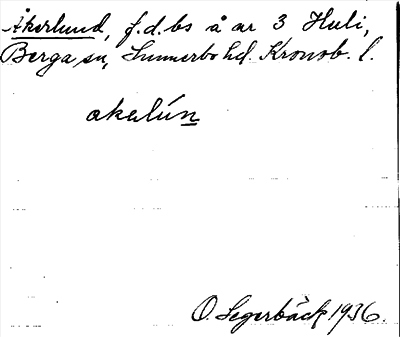 Åkerlund, f.d.bs å ar 3 Huli,
Berga sn, Sunnerbo hd. Kronob. l.
akalún
O. Segerbäck 1936.